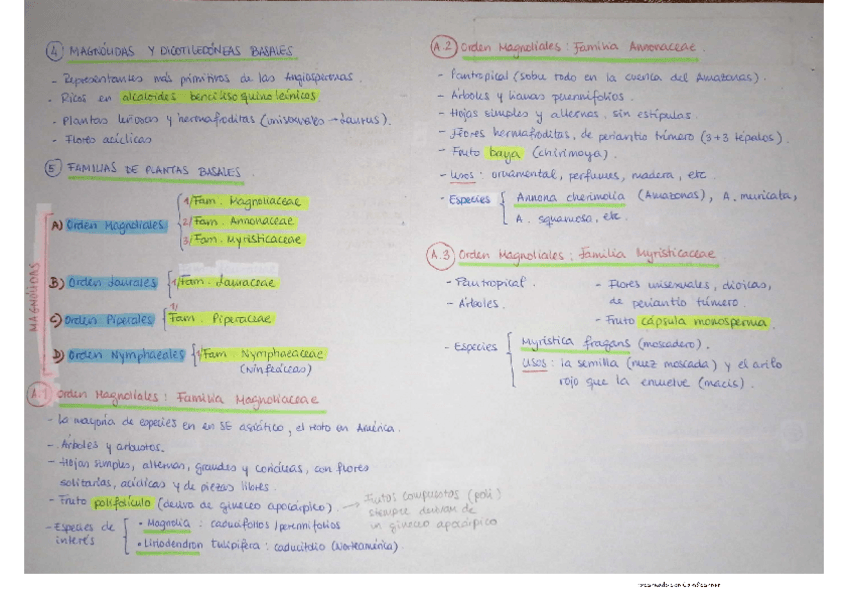 4 MAGNÓLIDAS Y DICOTILEDÓNEAS BASALES
- Representantes más primitivos de las Angiospermas.
- Ricos en alcaloides bencilisoquinoleínicos
- Plantas leñosas y hermafroditas (unisexuales → Laurus).
- Flores acíclicas
5 FAMILIAS DE PLANTAS BASALES
MAGNÓLIDAS
A) Orden Magnoliales
1/ Fam. Magnoliaceae
2/ Fam. Annonaceae
3/ Fam. Myristicaceae
B) Orden Laurales
1/ Fam. Lauraceae
C) Orden Piperales
1/ Fam. Piperaceae
D) Orden Nymphaeales
1/ Fam. Nymphaeaceae
(Ninfeáceas)
A.1 Orden Magnoliales: Familia Magnoliaceae
- La mayoría de especies en en SE asiático, el resto en América.
- Árboles y arbustos.
- Hojas simples, alternas, grandes y coriáceas, con flores
solitarias, acíclicas y de piezas libres.
- Fruto polifolículo (deriva de gineceo apocárpico)
→ Frutos compuestos (poli)
siempre derivan de
un gineceo apocárpico
- Especies de
interés
• Magnolia: caducifolios/perennifolios
• Liriodendron tulipifera: caducifolio (Norteamérica).
A.2 Orden Magnoliales: Familia Annonaceae.
- Pantropical (sobre todo en la cuenca del Amazonas).
- Árboles y lianas perennifolios.
- Hojas simples y alternas, sin estípulas.
- Flores hermafroditas, de periantio trímero (3+3 tépalos).
- Fruto baya (chirimoya).
- Usos: ornamental, perfumes, madera, etc.
- Especies
Annona cherimolia (Amazonas), A. muricata,
A. squamosa, etc.
A.3 Orden Magnoliales: Familia Myristicaceae
- Pantropical.
- Árboles.
- Flores unisexuales, dioicas,
de periantio trímero.
- Fruto cápsula monosperma.
- Especies
Myristica fragans (moscadero).
Usos: la semilla (nuez moscada) y el arilo
rojo que la envuelve (macis).